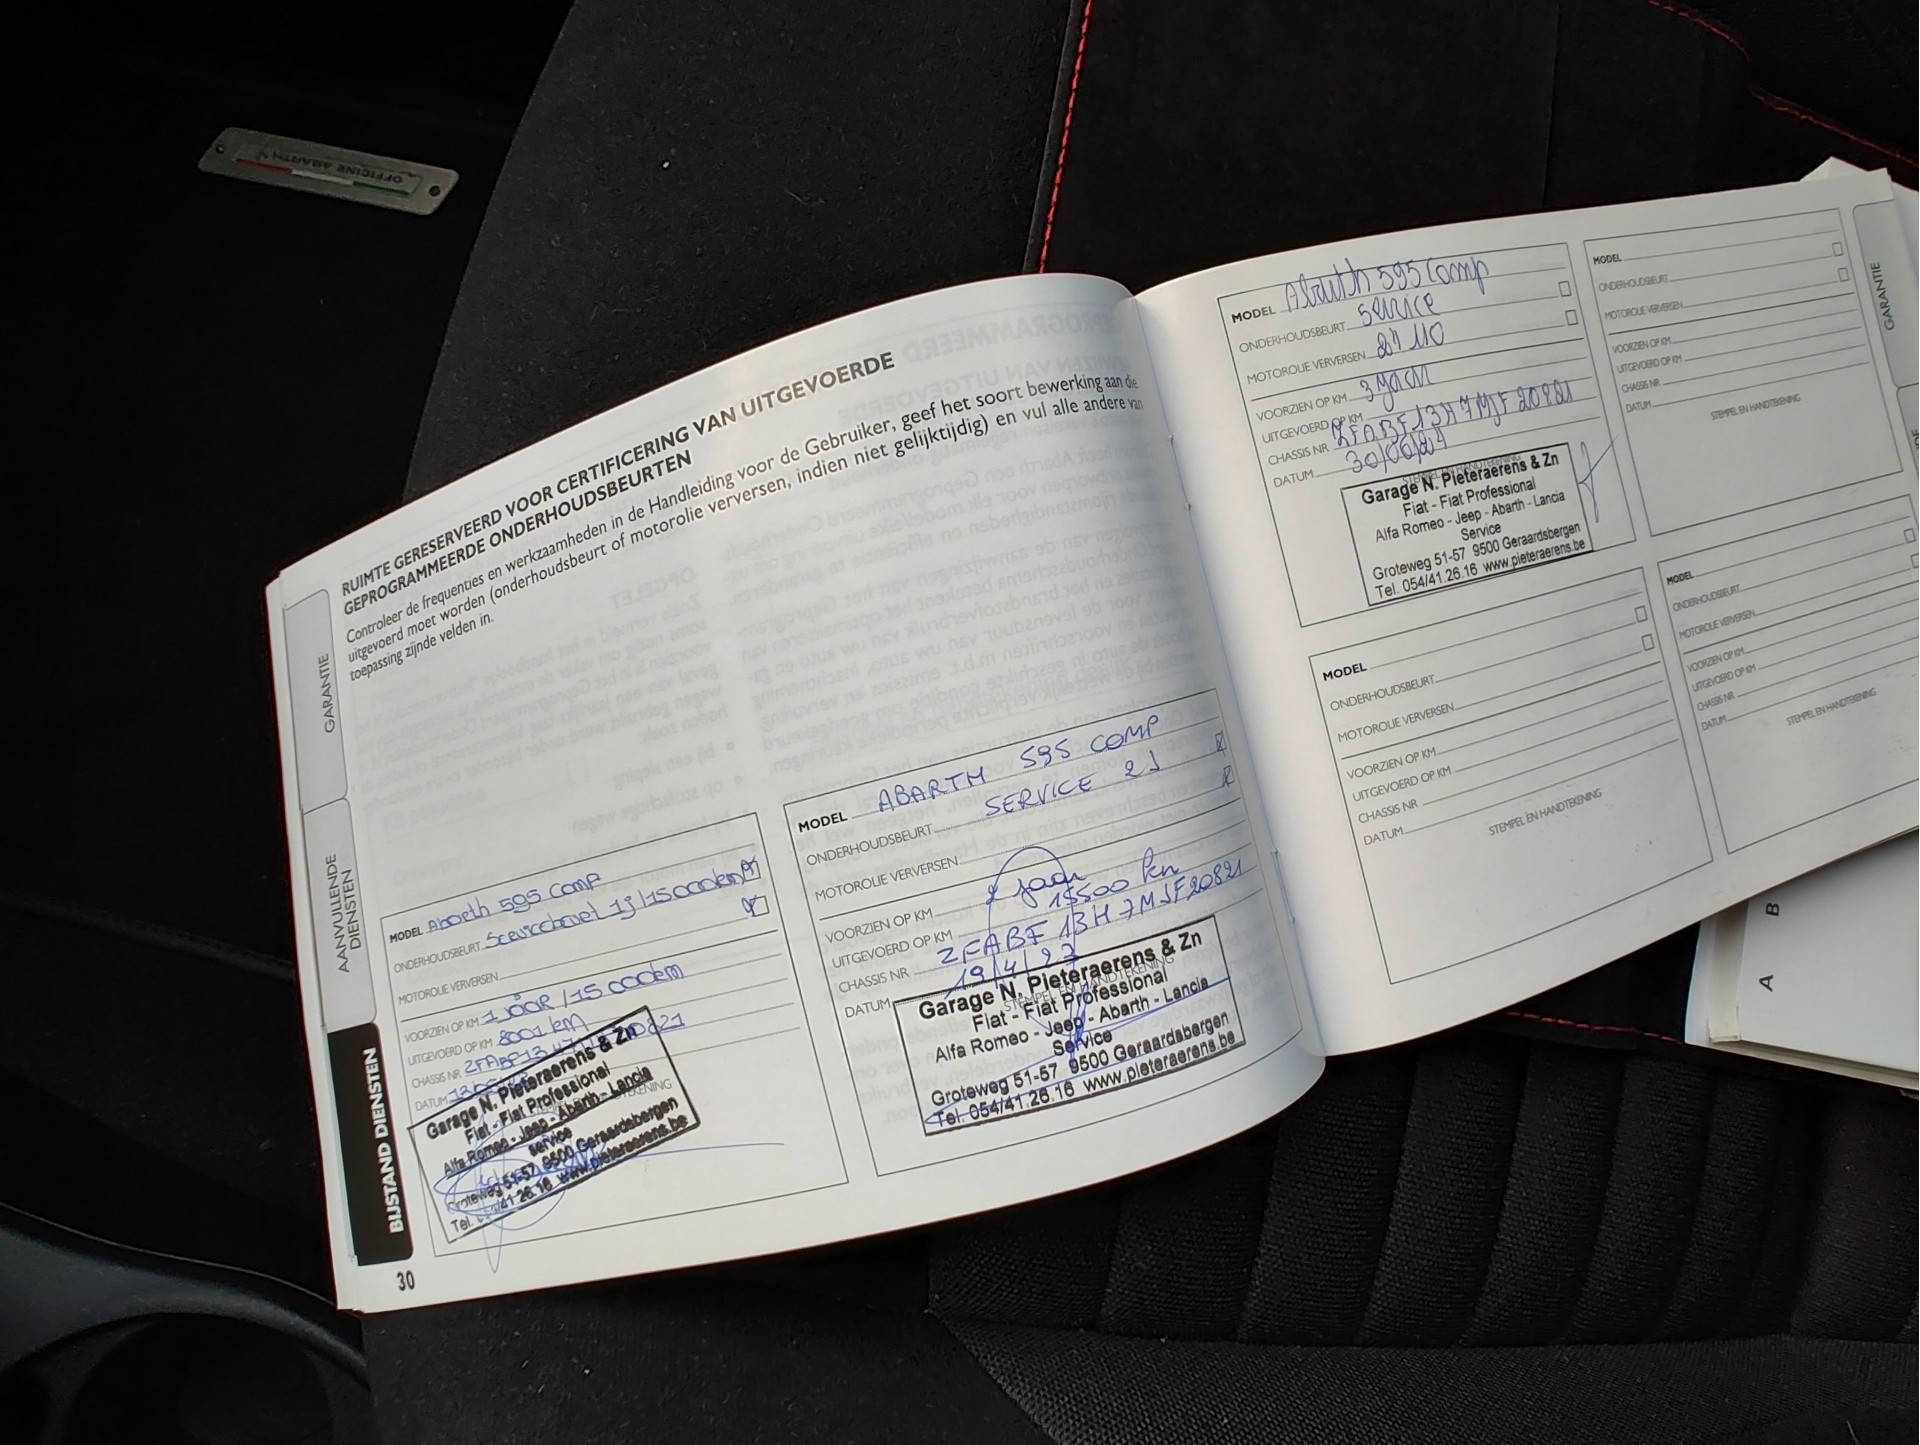 OFFICINE ABARTH
RUIMTE GERESERVEERD VOOR CERTIFICERING VAN UITGEVOERDE
GEPROGRAMMEERDE ONDERHOUDSBEURTEN
Controleer de frequenties en werkzaamheden in de Handleiding voor de Gebruiker, geef het soort bewerking aan die
uitgevoerd moet worden (onderhoudsbeurt of motorolie verversen, indien niet gelijktijdig) en vul alle andere van
toepassing zijnde velden in.
GARANTIE
AANVULLENDE
DIENSTEN
BIJSTAND DIENSTEN
MODEL Abarth 595 Comp
ONDERHOUDSBEURT Servicebeurt 1j/15000km
MOTOROLIE VERVERSEN
VOORZIEN OP KM 1 JAAR /15 000km
UITGEVOERD OP KM 8001 km
CHASSIS NR
DATUM
Garage N. Pieteraerens & Zn
Fiat - Fiat Professional
Alfa Romeo - Jeep - Abarth - Lancia
service
Groteweg 51-57 9500 Geraardsbergen
Tel. /41.26.16 www.pieteraerens.be
30
MODEL ABARTH 595 COMP
ONDERHOUDSBEURT SERVICE 2J
MOTOROLIE VERVERSEN
VOORZIEN OP KM 2 jaar
UITGEVOERD OP KM 15500 km
CHASSIS NR ZFABF13H7MJF20821
DATUM 19/4/23
STEMPEL EN HANDTEKENING
Garage N. Pieteraerens & Zn
Fiat - Fiat Professional
Alfa Romeo - Jeep - Abarth - Lancia
Service
Groteweg 51-57 9500 Geraardsbergen
Tel. 054/41.26.16 www.pieteraerens.be
MODEL Abarth 595 Comp
ONDERHOUDSBEURT Service
MOTOROLIE VERVERSEN
VOORZIEN OP KM 3 jaar
UITGEVOERD OP KM
CHASSIS NR ZFABF13H7MJF20821
DATUM 30/06/24
STEMPEL EN HANDTEKENING
Garage N. Pieteraerens & Zn
Fiat - Fiat Professional
Alfa Romeo - Jeep - Abarth - Lancia
Service
Groteweg 51-57 9500 Geraardsbergen
Tel. 054/41.26.16 www.pieteraerens.be
MODEL
ONDERHOUDSBEURT
MOTOROLIE VERVERSEN
VOORZIEN OP KM
UITGEVOERD OP KM
CHASSIS NR
DATUM
STEMPEL EN HANDTEKENING
MODEL
ONDERHOUDSBEURT
MOTOROLIE VERVERSEN
VOORZIEN OP KM
UITGEVOERD OP KM
CHASSIS NR
DATUM
STEMPEL EN HANDTEKENING
MODEL
ONDERHOUDSBEURT
MOTOROLIE VERVERSEN
VOORZIEN OP KM
UITGEVOERD OP KM
CHASSIS NR
DATUM
STEMPEL EN HANDTEKENING
GARANTIE
A
B